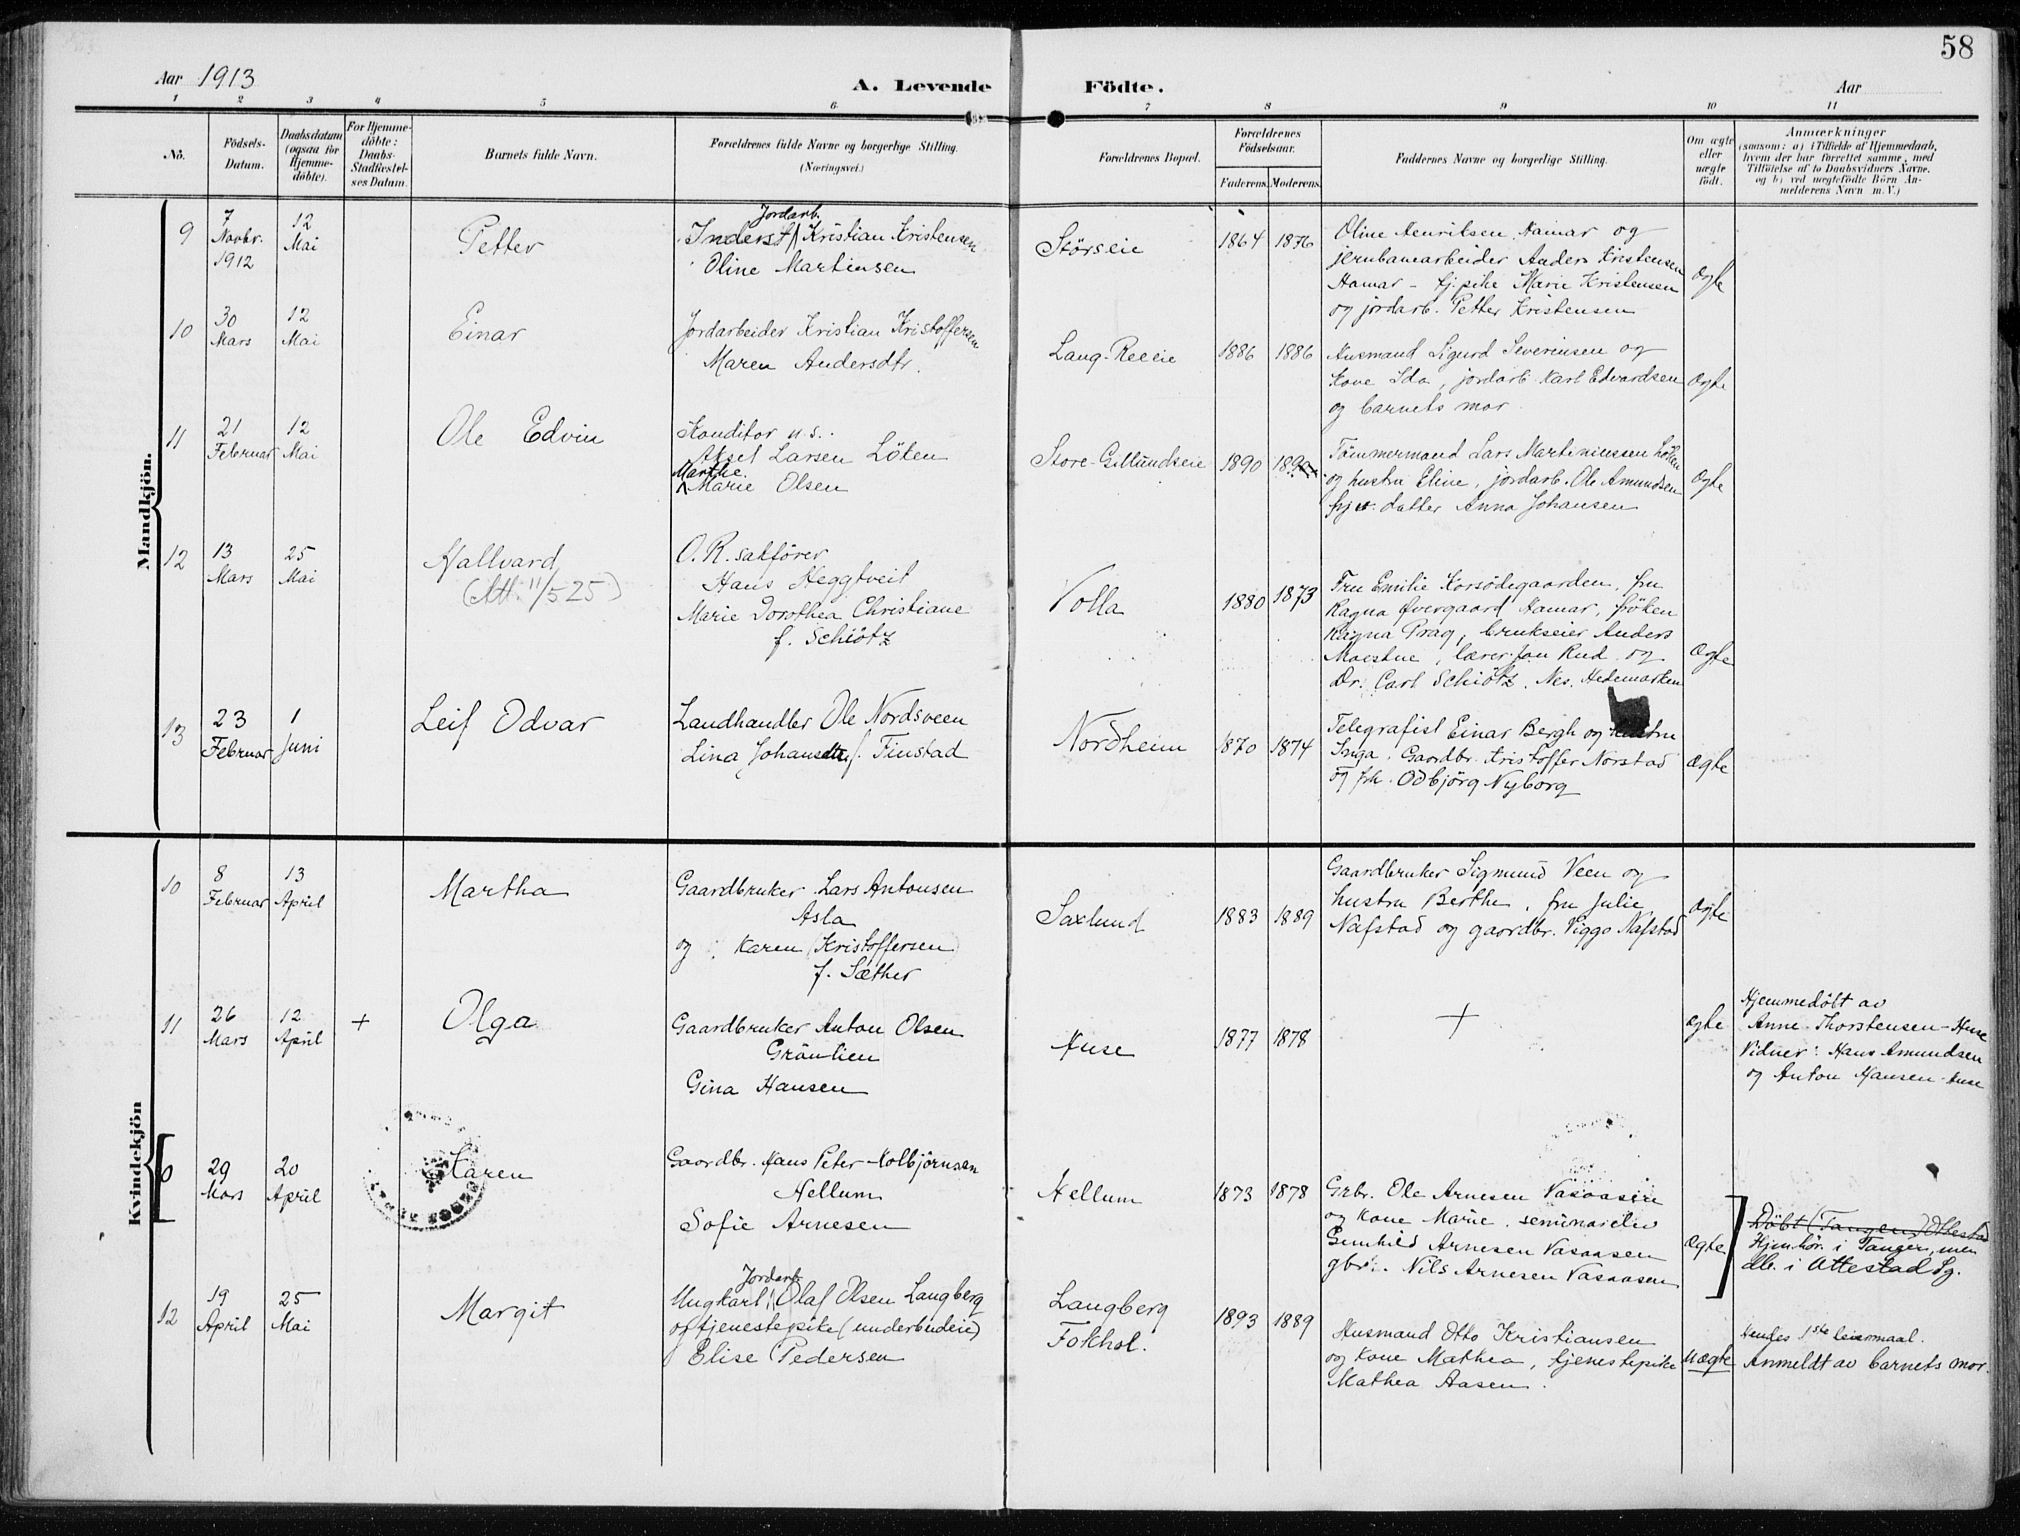 58
Aar 1913 A. Levende Födte. Aar
1 2 3 4 5 6 7 8 9 10 11
No.
Födsels-
Datum.
Daabsdatum
(ogsaa for
Hjemme-
döbte).
For Hjemme-
döbte:
Daabs-
Stadfæstel-
ses Datum.
Barnets fulde Navn.
Forældrenes fulde Navne og borgerlige Stilling.
(Næringsvei.)
Forældrenes Bopæl.
Forældrenes
Födselsaar.
Faderens. Moderens.
Faddernes Navne og borgerlige Stilling.
Om ægte
eller
uægte
födt.
Anmærkninger
(saasom: a) i Tilfælde af Hjemmedaab,
hvem der har forrettet samme, med
Tilföielse af to Daabsvidners Navne.
og b) ved uægtefödte Börn An-
melderens Navn m. V.)
Mandkjön.
9
7
Novbr.
1912
12
Mai
Petter
Jordarb.
Inderst Kristian Kristensen
Oline Martinsen
Størseie
1864 1876
Oline Henriksen, Hamar og
jernbanearbeider Anders Kristensen
Hamar - tj.pike Marie Kristensen
og jordarb. Petter Kristensen
Ægte
10
30
Mars
12
Mai
Einar
Jordarbeider Kristian Kristoffersen
Maren Andersdtr.
Lang-Reeie
1886 1886
Husmand Sigurd Severinsen og
Kone Ida, jordarb. Karl Edvardsen
og barnets mor
Ægte
11
21
Februar
12
Mai
Ole Edvin
Konditor u.s.
Aksel Larsen Löken
Marthe
Marie Olsen
Store-Gillundseie
1890
Tömmermand Lars Martiniussen Löken
og hustru Eline, jordarb. Ole Amundsen
datter Anna Johansen
Ægte
12
13
Mars
25
Mai
Hallvard
(Att. 11/5 25)
O.R. sakfører
Hans Heggtveit
Marie Dorothea Christiane
f. Schiötz
Volla
1880 1873
Fru Emilie Korsödegaarden, fru
Ragna Øvergaard Hamar, fröken
Ragna Prag, brukseier Anders
Maestue, lærer Jon Rud og
Dr. Carl Schiötz. Nes. Hedemarken
Ægte
13
23
Februar
1
Juni
Leif Odvar
Landhandler Ole Nordsveen
Lina f. Finstad
Nordheim
1870 1874
Telegrafist Einar Bergh og hustru
Inga, Gaardbr. Kristoffer Norstad
og frk. Odbjörg Nyborg
Ægte
Kvindekjön
10
8
Februar
13
April
Martha
Gaardbruker Lars Antonsen
Asla
og Karen (Kristoffersen)
f. Sæther
Saxlund
1883 1889
Gaardbruker Sigmund Veen og
hustru Berthe, fru Julie
Nafstad og gaardbr. Viggo Nafstad
Ægte
11
26
Mars
12
April
+
Olga
Gaardbruker Anton Olsen
Grönlien
Gina Hansen
Huse
1877 1878
+
ægte
Hjemmedöbt av
Anne Thorstensen-Huse
Vidner: Hans Amundsen
og Anton Hansen-Huse
0
29
Mars
20
April
Karen
Gaardbr. Hans Peter Kolbjörnsen
Hellum
Sofie Arnesen
Hellum
1873 1878
Grbr. Ole Arnesen Vasaasen
og Kone Marie, seminarelev
Gunhild Arnesen Vasaasen
gbr. Nils Arnesen Vasaasen
Ægte
Döbt (Tangen) Ottestad
Hjemhör. i Tangen, men
db. i Ottestad Sg.
12
19
April
25
Mai
Margit
Jordarb.
Ungkarl Olaf Olsen Langberg
og tjenestepike (underbudeie)
Elise Pedersen
Langberg
Fokhol.
1893 1889
Husmand Otto Kristiansen
og Kone Mathea, tjenestepike
Mathea Aasen.
Uægte
Hendes 1ste leiermaal.
Anmeldt av barnets mor.